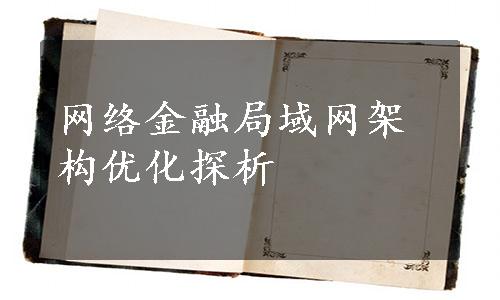 网络金融局域网架
构优化探析